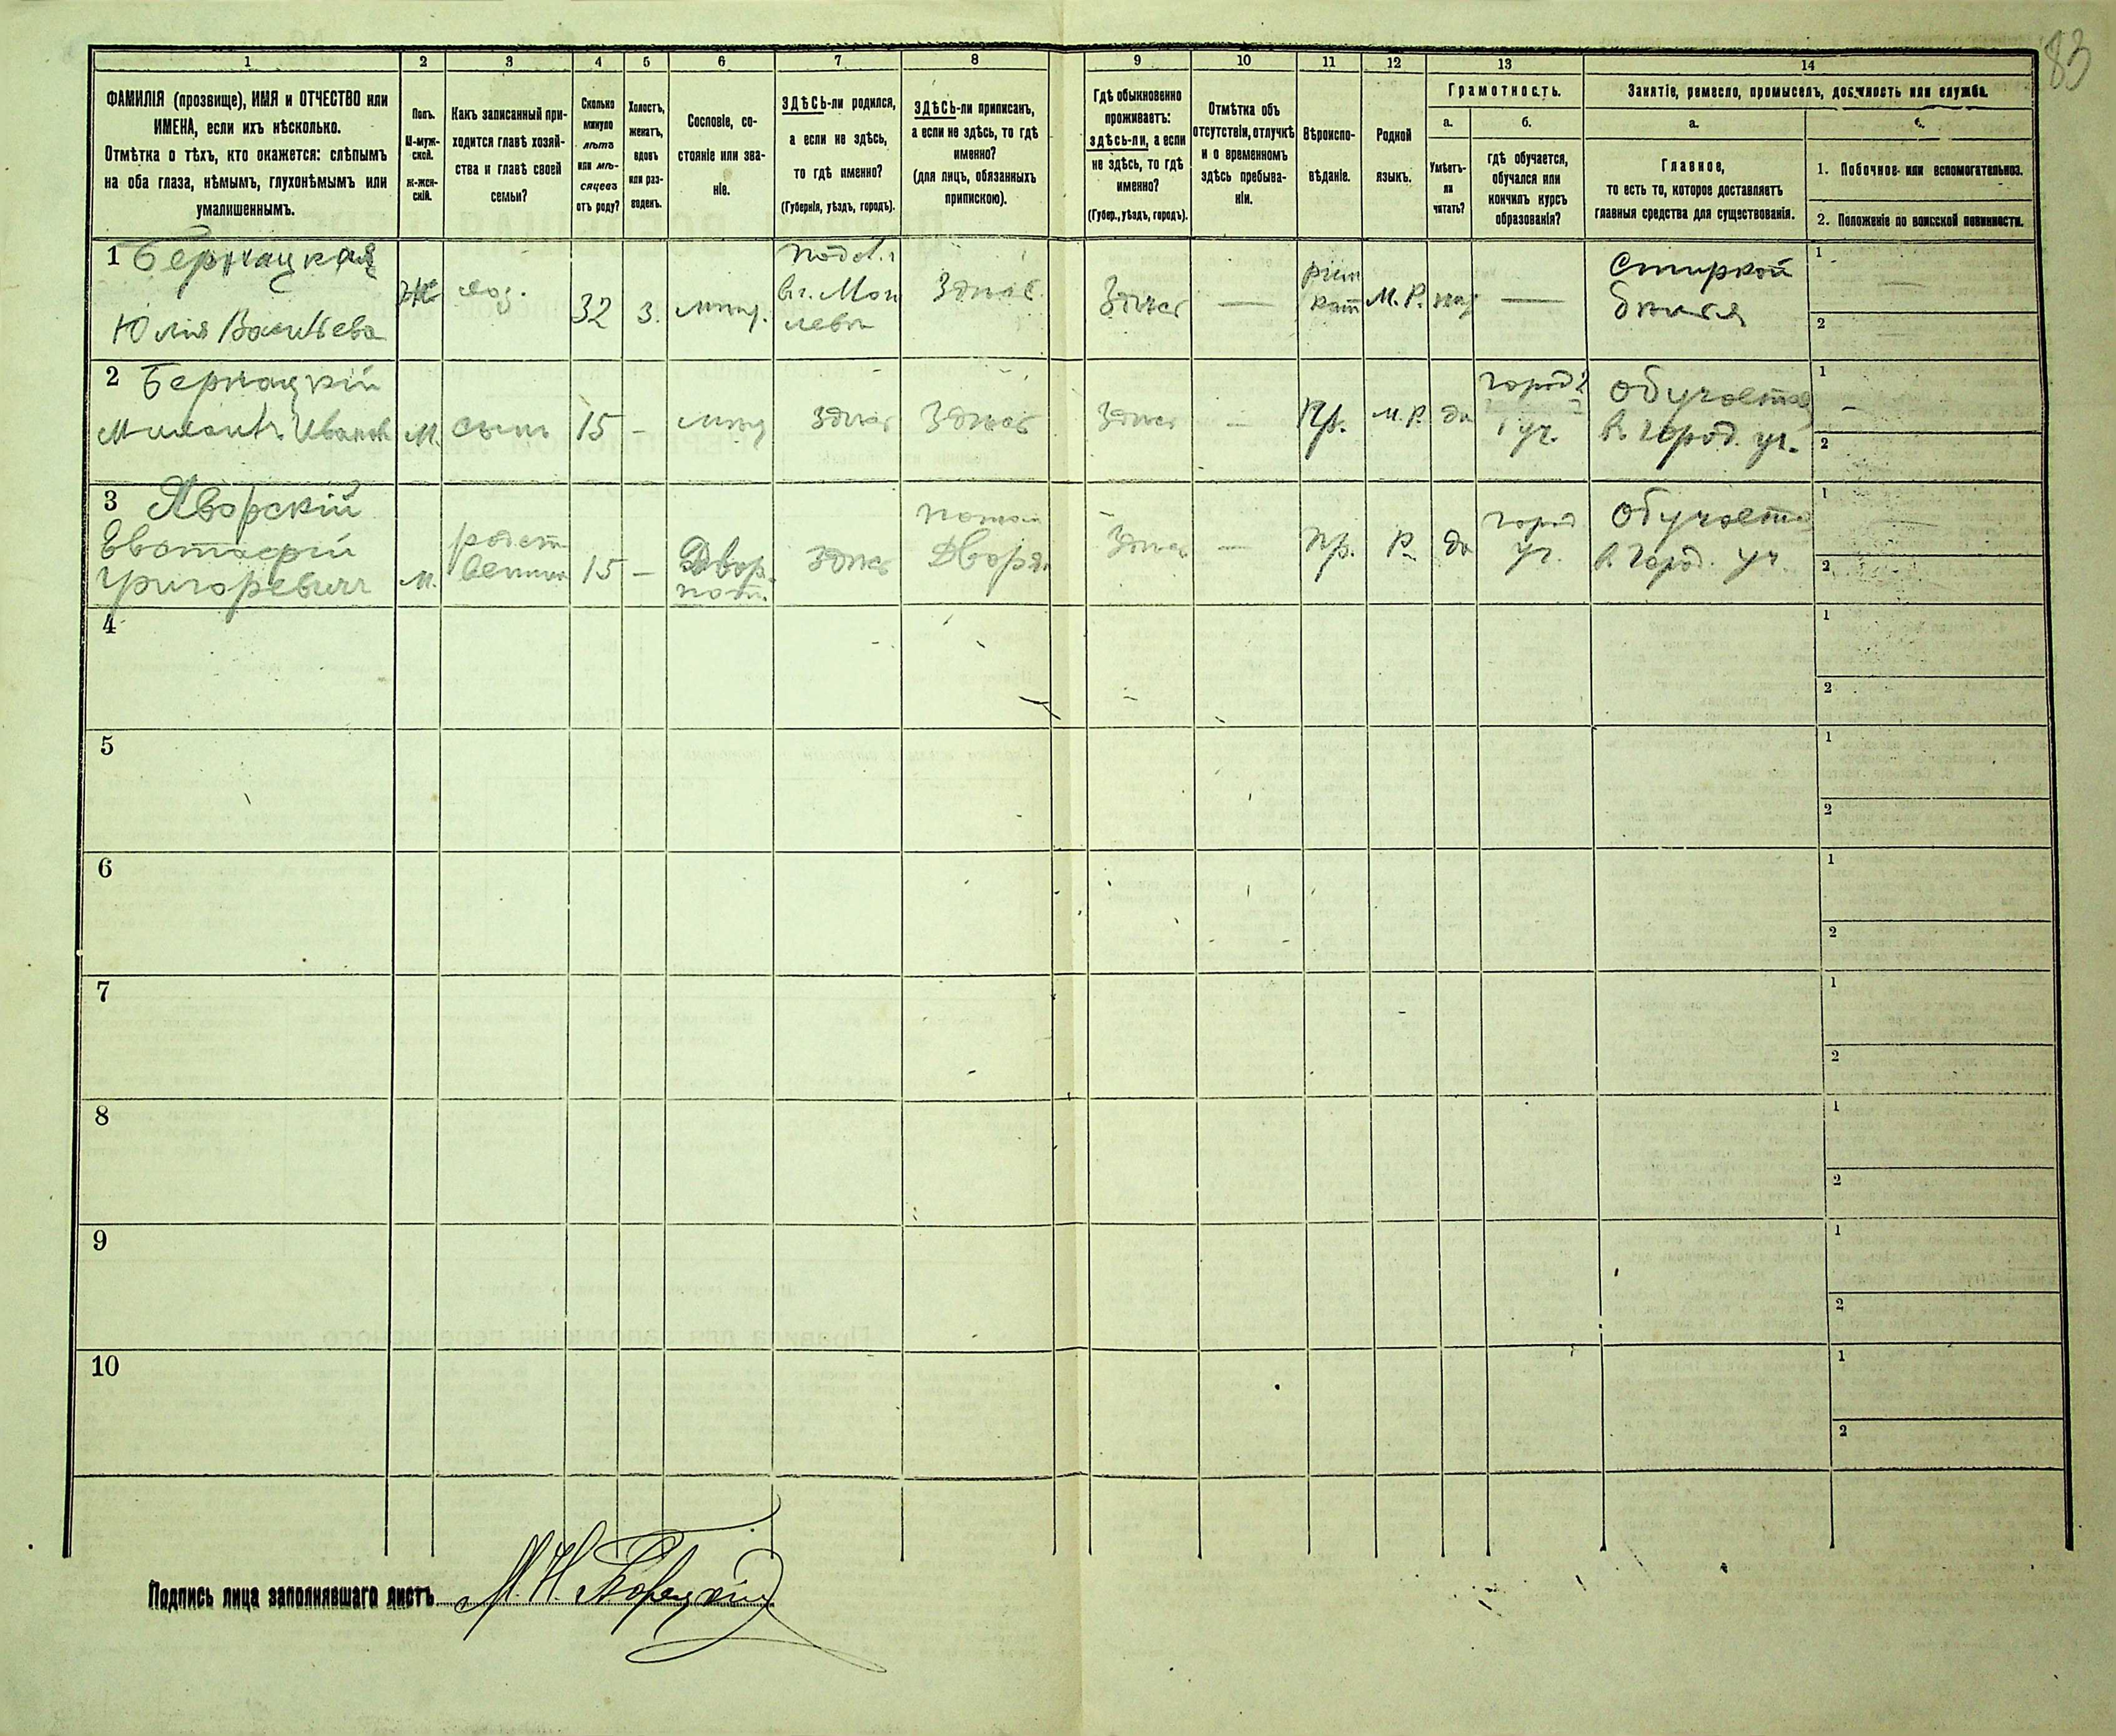 83
1 2 3 4 5 6 7 8 9 10 11 12 13 14
ФАМИЛІЯ (прозвище), ИМЯ и ОТЧЕСТВО или
ИМЕНА, если ихъ нѣсколько.
Отмѣтка о тѣхъ, кто окажется: слѣпымъ
на оба глаза, нѣмымъ, глухонѣмымъ или
умалишеннымъ.
Полъ.
М-муж-
ской.
Ж-жен-
скій.
Какъ записанный при-
ходится главѣ хозяй-
ства и главѣ своей
семьи?
Сколько
минуло
лѣтъ
или мѣ-
сяцевъ
отъ роду?
Холостъ,
женатъ,
вдовъ
или раз-
веденъ.
Сословіе, со-
стояніе или зва-
ніе.
ЗДѢСЬ-ли родился,
а если не здѣсь,
то гдѣ именно?
(Губернія, уѣздъ, городъ).
ЗДѢСЬ-ли приписанъ,
а если не здѣсь, то гдѣ
именно?
(для лицъ, обязанныхъ
припискою).
Гдѣ обыкновенно
проживаетъ:
здѣсь-ли, а если
не здѣсь, то гдѣ
именно?
(Губер., уѣздъ, городъ).
Отмѣтка объ
отсутствіи, отлучкѣ
и о временномъ
здѣсь пребыва-
ніи.
Вѣроиспо-
вѣданіе.
Родной
языкъ.
Грамотность.
а.
Умѣетъ-
ли
читать?
б.
гдѣ обучается,
обучался или
кончилъ курсъ
образованія?
Занятіе, ремесло, промыселъ, должность или служба.
а.
Главное,
то есть то, которое доставляетъ
главныя средства для существованія.
б.
1. Побочное или вспомогательное.
2. Положеніе по воинской повинности.
1 Бернацкая
Юлія Васильева
Ж
хоз.
32
З.
мѣщ.
Подол. г
Здѣсь
Здѣсь
—
рим
кат
М. Р.
—
Стиркой
бѣлья
1
2
2 Бернацкій
М.
сынъ
15
—
мѣщ
Здѣсь
Здѣсь
Здѣсь
—
Пр.
М. Р.
да
город
уч.
Обучается
в город. уч.
1
2
3 Яворскій
Евстафій
Григоревичъ
М.
родст
венник
15
—
Двор.
пот.
Здѣсь
потом
Дворян
Здѣсь
—
Пр.
Р.
да
город
уч.
Обучается
в город. уч
1
2
4
1
2
5
1
2
6
1
2
7
1
2
8
1
2
9
1
2
10
1
2
Подпись лица заполнявшаго листъ